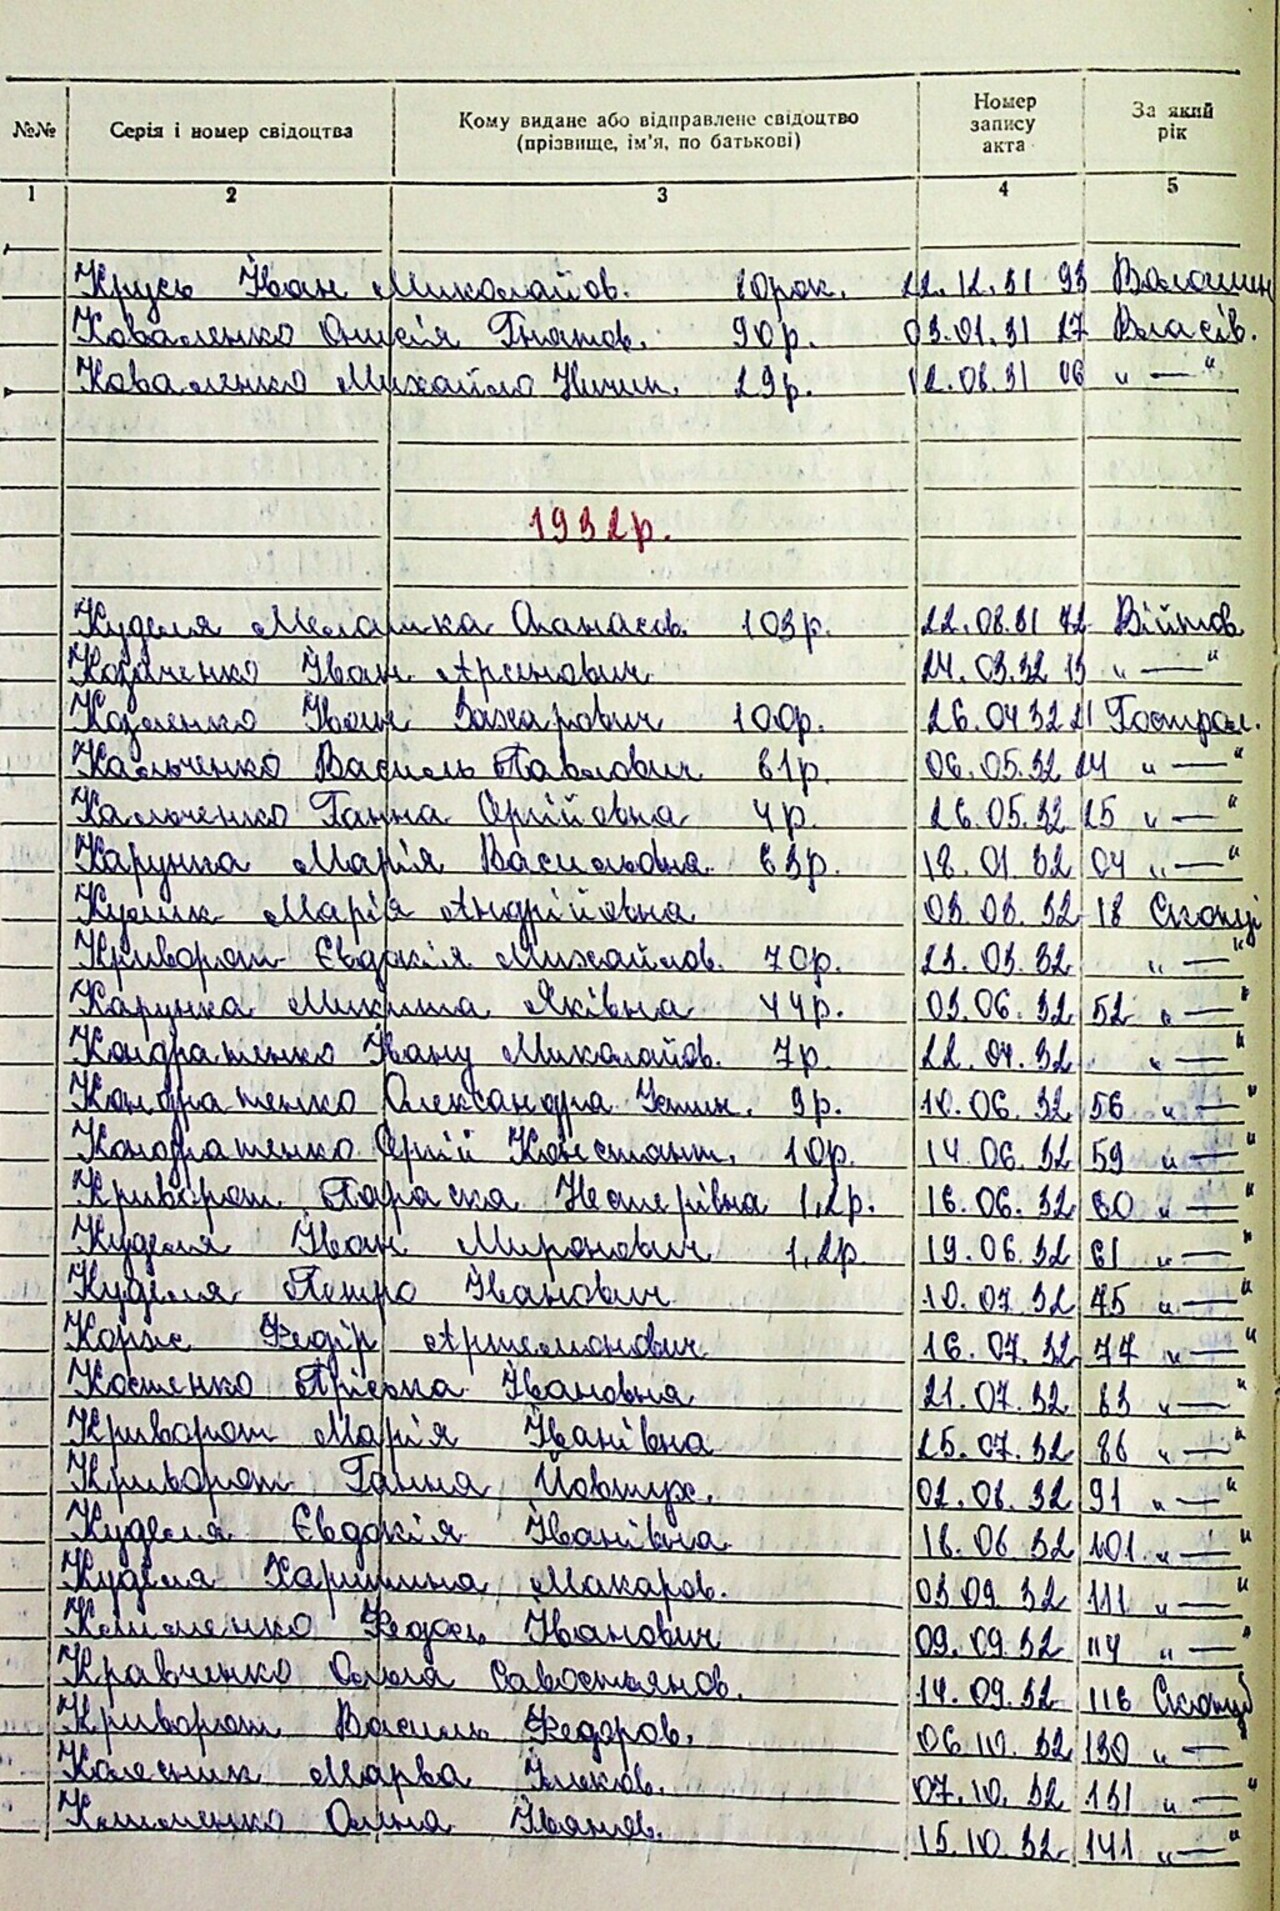 №№ Серія і номер свідоцтва Кому видане або відправлене свідоцтво (прізвище, ім'я, по батькові) Номер запису акта За який рік
1 2 3 4 5
Крусь Іван Миколайов. 10рок. 22.12.31 93 Волошин
Коваленко Онисія Гнатов. 90р. 03.01.31 27 Власів.
Коваленко Михайло Ничип. 29р. 12.08.31 06 " — "
1932р.
Куделя Меланка Опанасов. 103р. 22.08.31 72 Війтов
Козаченко Іван Арсенович 24.03.32 13 " — "
Козленко Іван Захарович 100р. 26.04 32 21 Гострол.
Кальченко Василь Павлович 61р. 06.05.32 24 " — "
Кальченко Ганна Сергійовна 4р. 26.05.32 25 " — "
Карунка Марія Васильовна 63р. 18.01 32 04 " — "
Кулик Марія Андрійовна 03.03.32 18
Криворот Євдокія Михайлов. 70р. 23.03.32 " — "
Карунка Микита Яківна 44р. 03.06.32 52 " — "
Кондратенко Івану Миколайов. 7р. 22.04.32 " — "
Кондратенко Олександра Устин. 9р. 10.06.32 56 " — "
Кондратенко Сергій Констант. 10р. 14.06.32 59 " — "
Криворот Параска Нестерівна 1,2р. 16.06.32 60 " — "
Куделя Іван Миронович 1,2р. 19.06.32 61 " — "
Куделя Петро Іванович 10.07.32 75 " — "
Корж Федір Артемонович 16.07.32 77 " — "
Костенко Пріська Івановна 21.07.32 83 " — "
Криворот Марія Іванівна 25.07.32 86 " — "
Криворот Ганна Йовтух. 02.08.32 91 " — "
Куделя Євдокія Іванівна 18.08 32 101 " — "
Куделя Харитина Макаров. 03 09.32 111 " — "
Клименко Федось Іванович 09.09.32 114 " — "
Кравченко Ольга Савостьянов. 14.09.32 116
Криворот Василь Федоров. 06.10.32 130 " — "
Колесник Марва 07.10.32 131 " — "
Клименко Олина Іванов. 15.10.32 141 " — "